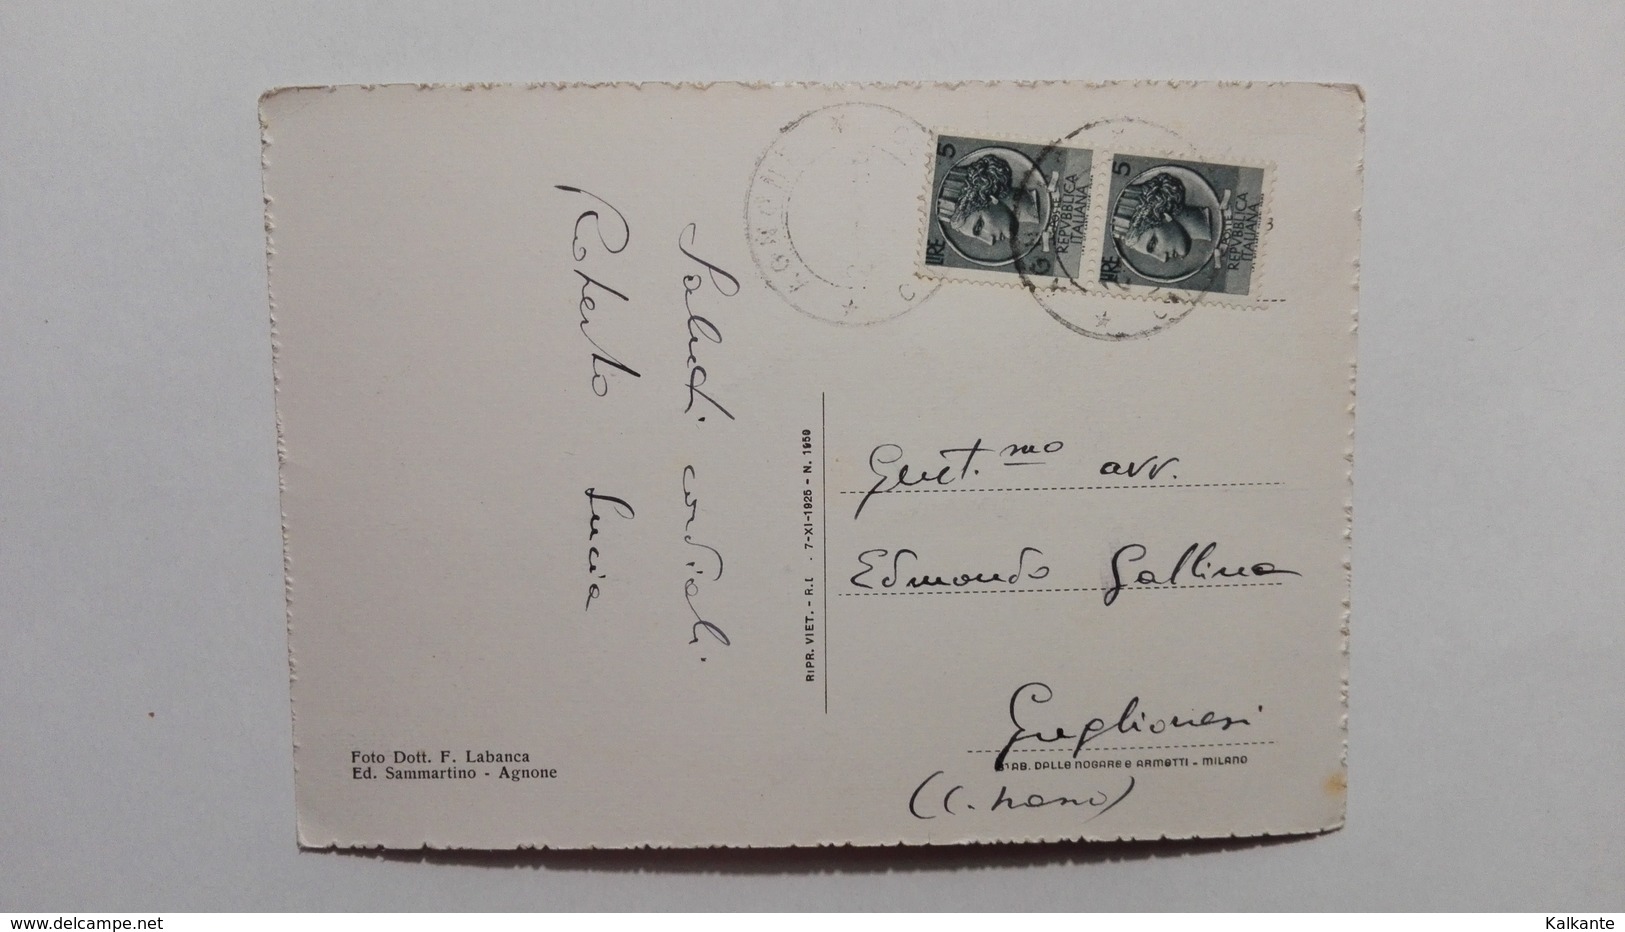 Saluti cordiali
Roberto Lucia
Foto Dott. F. Labanca
Ed. Sammartino - Agnone
RIPR. VIET. - R.L. . 7-XI-1925 - N. 1959
5
LIRE
POSTE
REPVBBLICA
ITALIANA
5
LIRE
POSTE
REPVBBLICA
ITALIANA
Gent.mo avv.
Edmondo Gallina
Guglionesi
STAB. DALLE NOGARE E ARMETTI - MILANO
www.delcampe.net
Kalkante